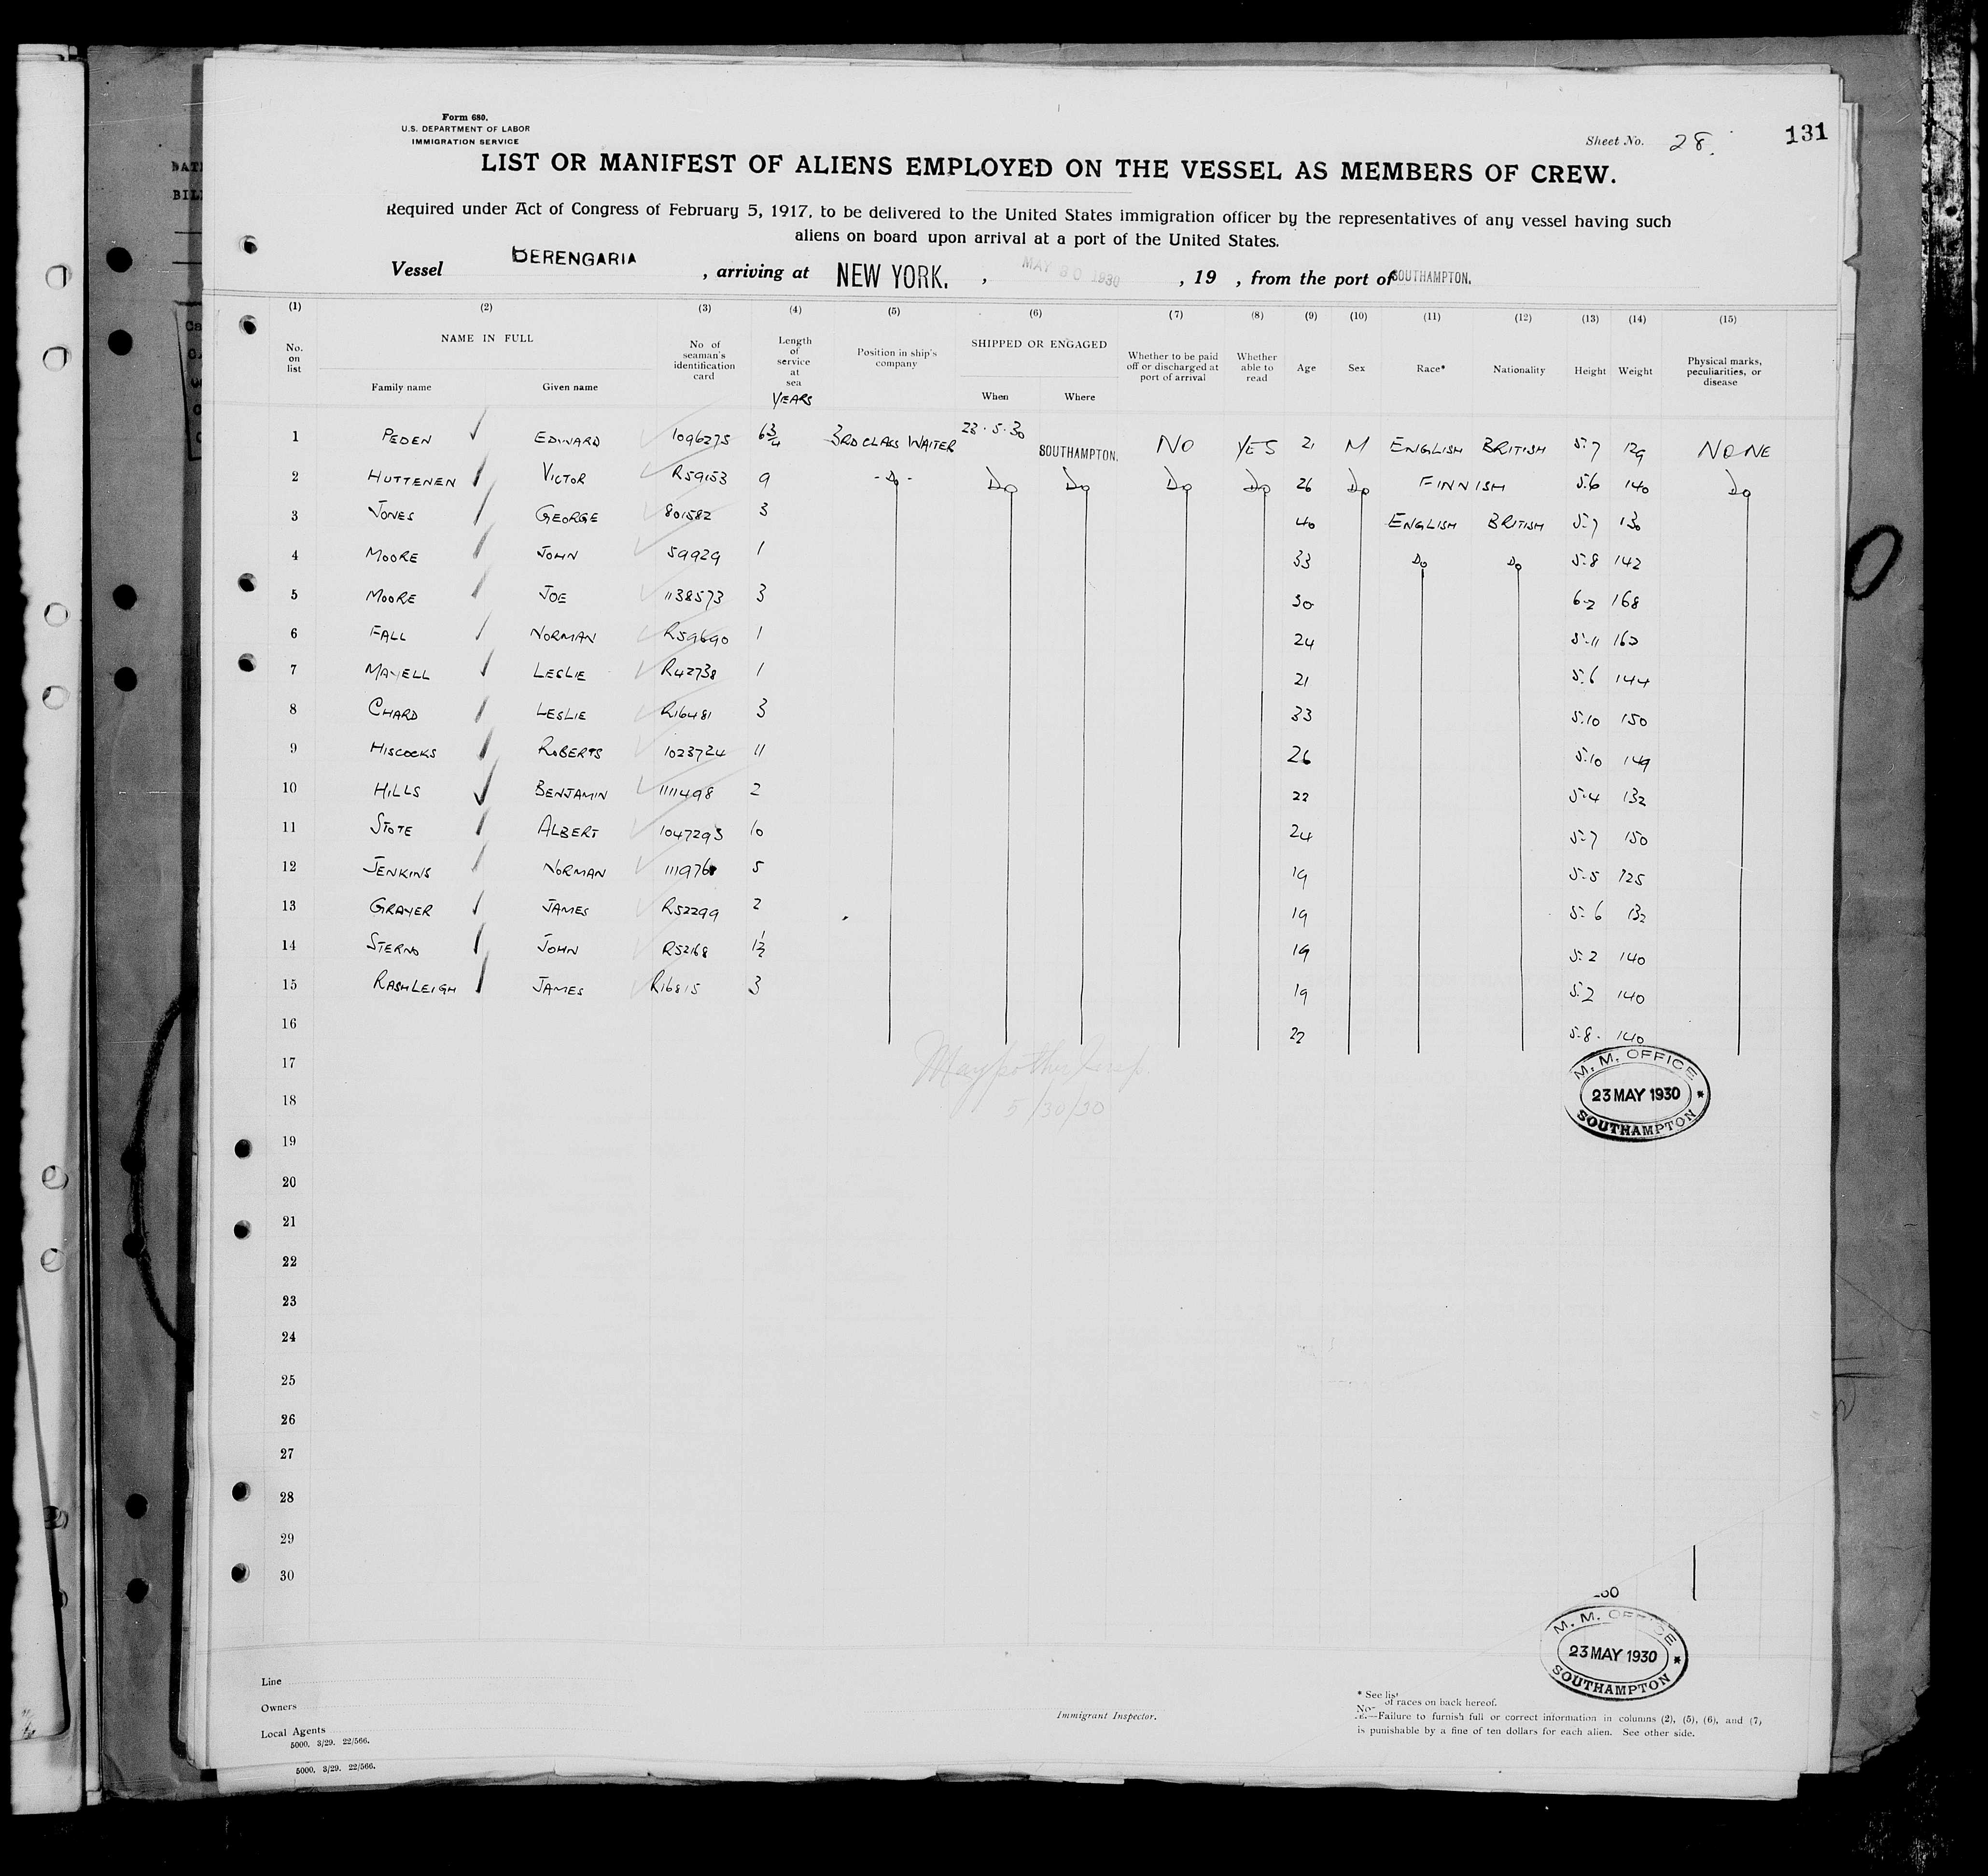 Form 680.
U.S. DEPARTMENT OF LABOR
IMMIGRATION SERVICE
Sheet No. 28.
131
LIST OR MANIFEST OF ALIENS EMPLOYED ON THE VESSEL AS MEMBERS OF CREW.
Required under Act of Congress of February 5, 1917, to be delivered to the United States immigration officer by the representatives of any vessel having such
aliens on board upon arrival at a port of the United States.
Vessel BERENGARIA , arriving at NEW YORK. , MAY 30 1930 , 19 , from the port of SOUTHAMPTON.
(1) (2) (3) (4) (5) (6) (7) (8) (9) (10) (11) (12) (13) (14) (15)
No. on list
NAME IN FULL
Family name Given name
No of seaman's identification card
Length of service at sea
YEARS
Position in ship's company
SHIPPED OR ENGAGED
When Where
Whether to be paid off or discharged at port of arrival
Whether able to read
Age Sex Race* Nationality Height Weight
Physical marks, peculiarities, or disease
1 PEDEN EDWARD 1096275 6¾ 3RD CLASS WAITER 23.5.30 SOUTHAMPTON. NO YES 21 M ENGLISH BRITISH 5.7 129 NONE
2 HUTTENEN VICTOR R59153 9 -Do- Do Do Do Do 26 Do FINNISH 5.6 140 Do
3 JONES GEORGE 801582 3 40 ENGLISH BRITISH 5.7 130
4 MOORE JOHN 59929 1 33 Do Do 5.8 142
5 MOORE JOE 1138573 3 30 6-2 168
6 FALL NORMAN R59690 1 24 5.11 160
7 MAYELL LESLIE R42738 1 21 5.6 144
8 CHARD LESLIE R16481 3 33 5.10 150
9 HISCOCKS ROBERTS 1023724 11 26 5.10 149
10 HILLS BENJAMIN 1111498 2 22 5.4 132
11 STOTE ALBERT 1047293 10 24 5.7 150
12 JENKINS NORMAN 5 19 5.5 125
13 GRAYER JAMES R52299 2 19 5.6 132
14 JOHN R52168 1½ 19 5.2 140
15 RASHLEIGH JAMES R16815 3 19 5.2 140
16 22 5.8. 140
17
18
5/30/30
M. M. OFFICE
23 MAY 1930
SOUTHAMPTON
19
20
21
22
23
24
25
26
27
28
29
30
M. M. OFFICE
23 MAY 1930
SOUTHAMPTON
Line
Owners
Local Agents
5000. 3/29. 22/566.
5000. 3/29. 22/566.
Immigrant Inspector.
* See list
of races on back hereof.
—Failure to furnish full or correct information in columns (2), (5), (6), and (7)
is punishable by a fine of ten dollars for each alien. See other side.